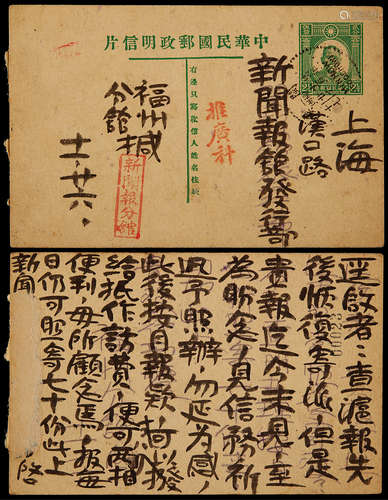 中華民國郵政明信片
上海
漢口路
新聞報館發行
推廣科
右邊只寫收信人姓名住址
福州緘
分館
十一,廿六,
新聞報分館
逕啟者:查滬報失
後恢復寄派,但是
貴報迄今,未見,至
為盼念,見信務祈
迅予照辦,勿延為感,
此後按月報款,撥
給抵作訪費,便可兩相
便利,毋所顧念焉,報每
日仍可照寄七十份,此上
新聞 啓